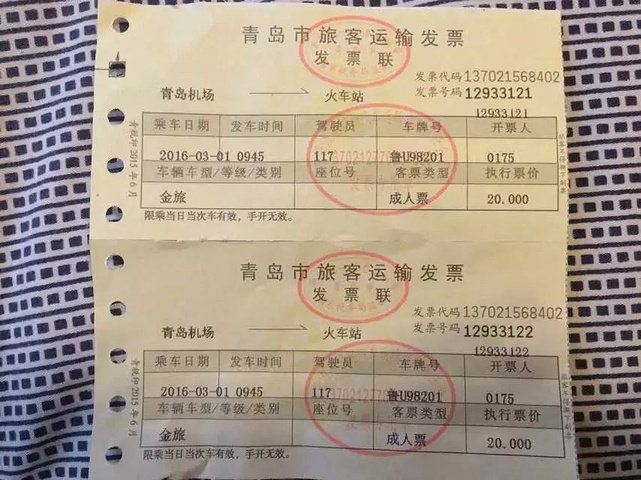 青岛市旅客运输发票
发票联
发票代码 137021568402
青岛机场 → 火车站 发票号码 12933121
12933121
乘车日期 发车时间 驾驶员 车牌号 开票人
2016-03-01 0945 117 鲁U98201 0175
车辆车型/等级/类别 座位号 客票类型 执行票价
金旅 成人票 20.000
限乘当日当次车有效，手开无效。
青税印2015年6月
青岛市旅客运输发票
发票联
发票代码 137021568402
青岛机场 → 火车站 发票号码 12933122
12933122
乘车日期 发车时间 驾驶员 车牌号 开票人
2016-03-01 0945 117 鲁U98201 0175
车辆车型/等级/类别 座位号 客票类型 执行票价
金旅 成人票 20.000
限乘当日当次车有效，手开无效。
青税印2015年6月